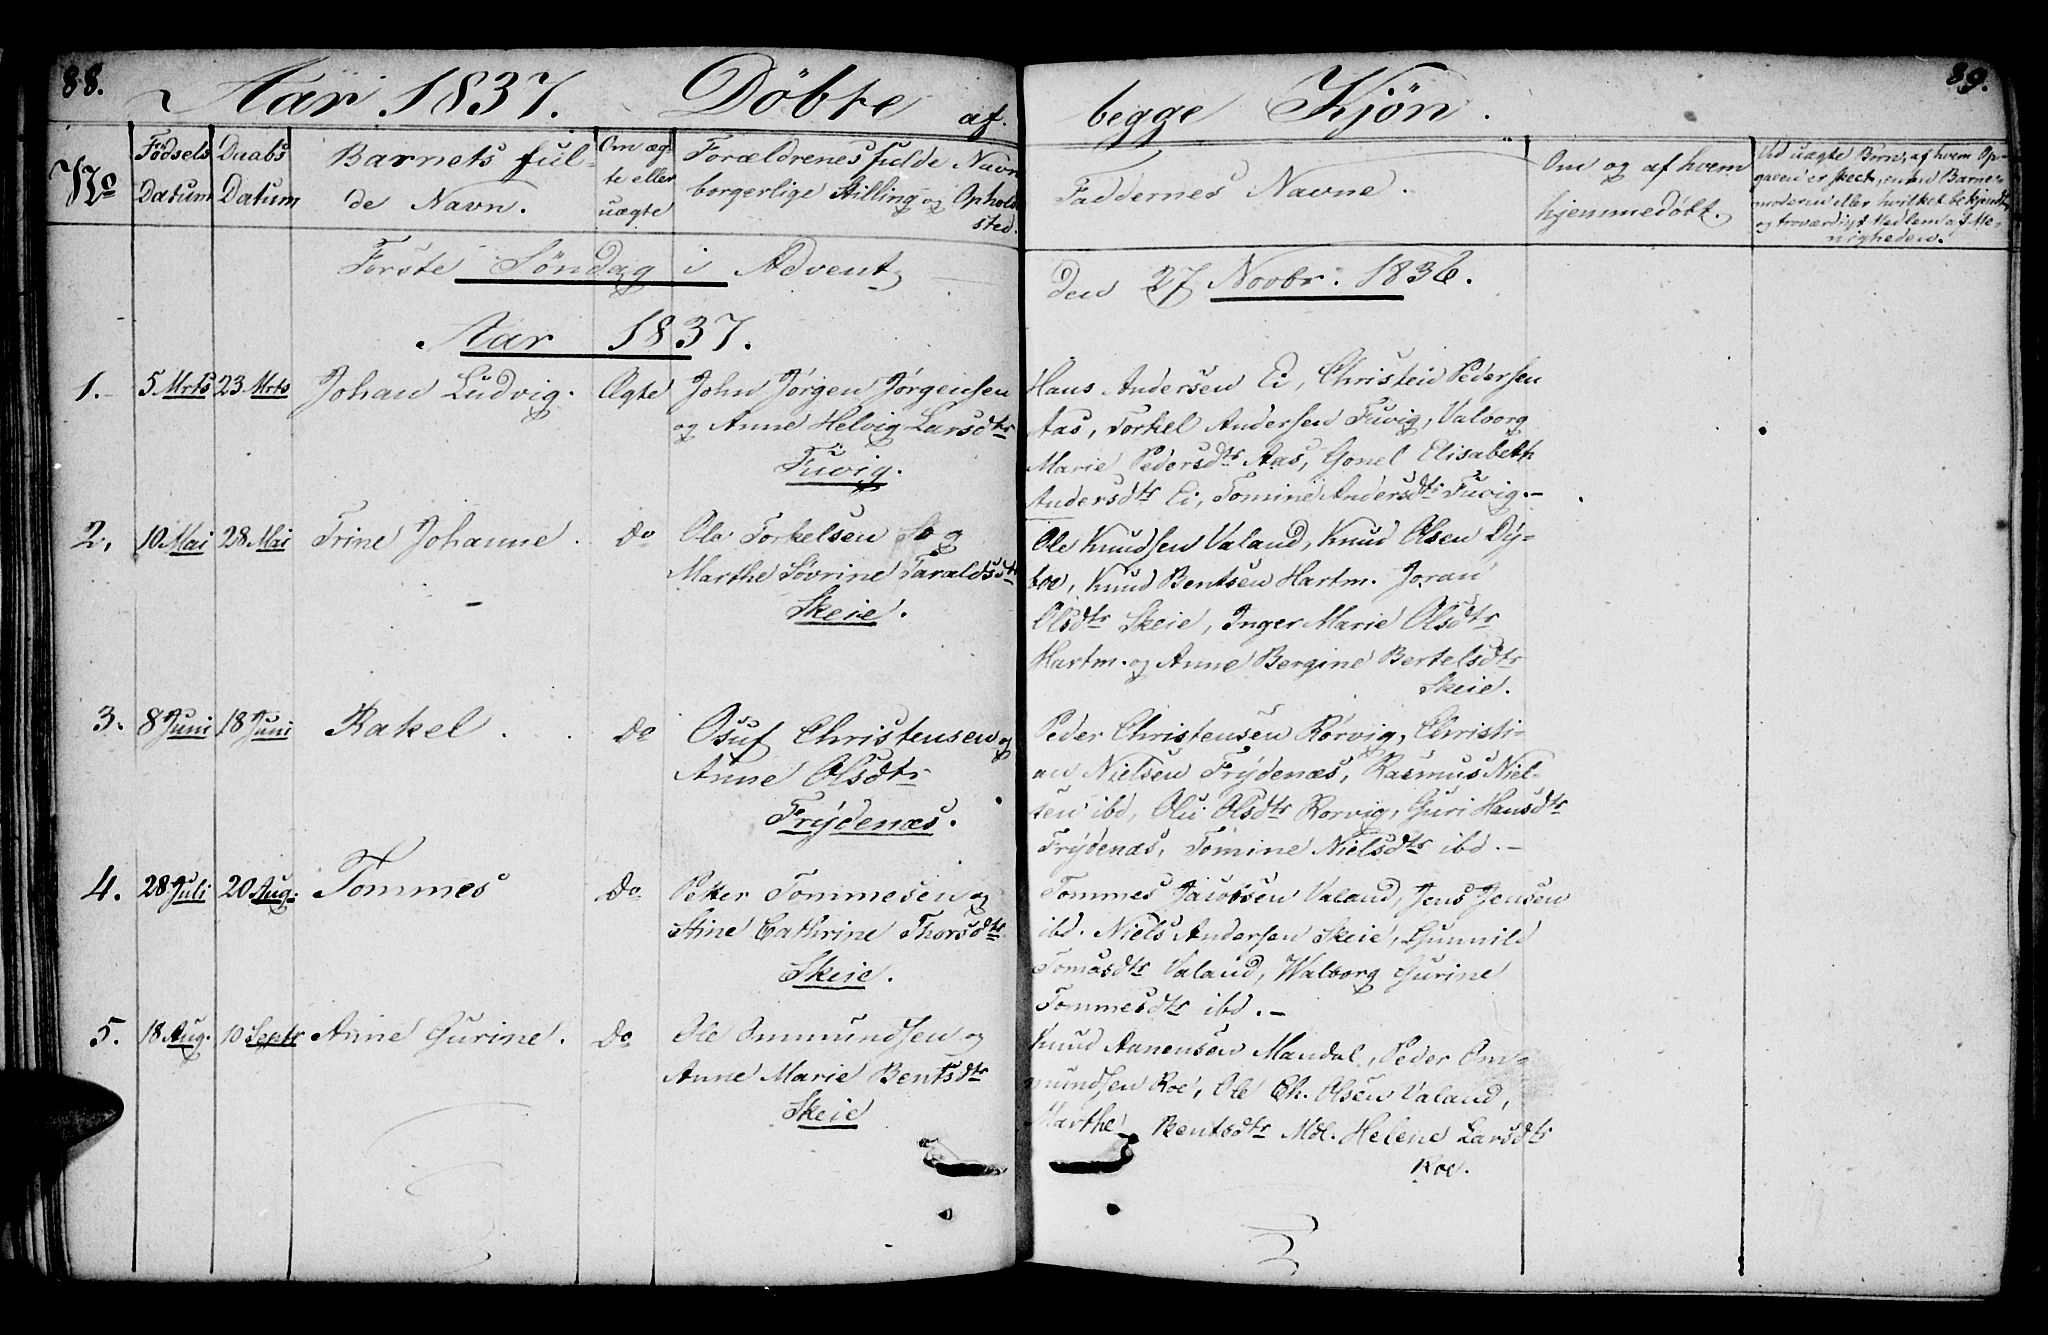 88.
Aar 1837. Döbte af.
begge Kjön.
89.
No
Födsels Datum
Daabs Datum
Barnets ful-
de Navn.
Om æg-
te eller
uægte
Forældrenes fulde Navn
borgerlige Stilling og Ophold
sted.
Faddernes Navne.
Om og af hvem
hjemmedöbt.
Ved uægte Börn, af hvem Op-
gaven er skeet, enten Barne-
moderen eller hvilket bekjendt
og troværdigt Medlem af Me-
nigheden.
Förste Söndag i Advent
den 27 Novbr. 1836.
Aar 1837.
1. 5 Mrts 23 Mrts Johan Ludvig. Ægte John Jörgen Jörgensen
og Anne Helvig Larsdtr
Tuvig.
Hans Andersen Ei, Christen Pedersen
Aas, Torkel Andersen Tuvig, Valborg
Marie Pedersdtr Aas, Gonel Elisabeth
Andersdtr Ei, Tomine Andersdtr Tuvig.-
2. 10 Mai 28 Mai Trine Johanne. Do Ole Torkelsen og
Marthe Sövrine Taraldsdtr
Skeie.
Ole Knudsen Valand, Knud Olsen Dy-
boe, Knud Bentsen Hartm. Joran
Olsdtr Skeie, Inger Marie Olsdtr
Hartm. og Anne Bergine Bertelsdtr
Skeie.
3. 8 Juni 18 Juni Rakel. Do Osuf Christensen og
Anne Olsdtr
Frydenæs.
Peder Christensen Rörvig, Christi-
an Nielsen Frydenæs, Rasmus Niel-
sen ibd, Olu Olsdtr Rorvig, Guri Hansdtr
Frydenæs, Tomine Nielsdtr ibd.-
4. 28 Juli 20 Aug. Tommes Do Petter Tommesen og
Stine Cathrine Thorsdtr
Skeie.
Tommes Jacobsen Valand, Jens Jensen
ibd. Niels Andersen Skeie, Gunnild
Tomasdtr Valand, Walborg Gurine
Tommesdtr ibd.-
5. 18 Aug. 10 Septr Anne Gurine. Do Ole Ommundsen og
Anne Marie Bentsdtr
Skeie
Knud Aanensen Mandal, Peder Om-
mundsen Roe, Ole Ch. Olsen Valand,
Marthe Bentsdtr Mdl. Helene Larsdtr
Roe.